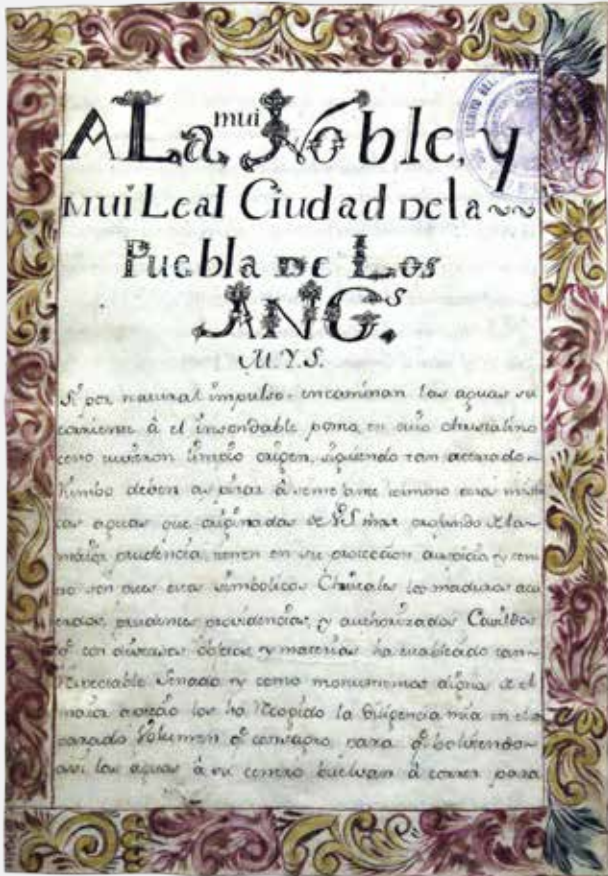 A La mui Noble, y
mui Leal Ciudad de la
Puebla de Los
ANG.s
M.Y.S.
Si por natural impulso encaminan las aguas su
corriente â el insondable ponto, en cuio christalino
ceno tuvieron limpio origen, siguiendo tan acertado
Rumbo deben aspirar â semejante termino estas misti
cas aguas que originadas de VS mar profundo de la
maior prudencia, tienen en su proteccion auspicio y cen
tro son pues estos simbolicos Christales los maduros acu
erdos, prudentes providencias, y authorizados Cavildos
q.e con diversos objetos y materias ha establecido tan
Respectable Senado y como monumentos dignos de el
maior aprecio los ha Recogido la diligencia mia en el
volumen q.e consagro para q.e bolviendo
assi las aguas â su centro buelvan â correr para